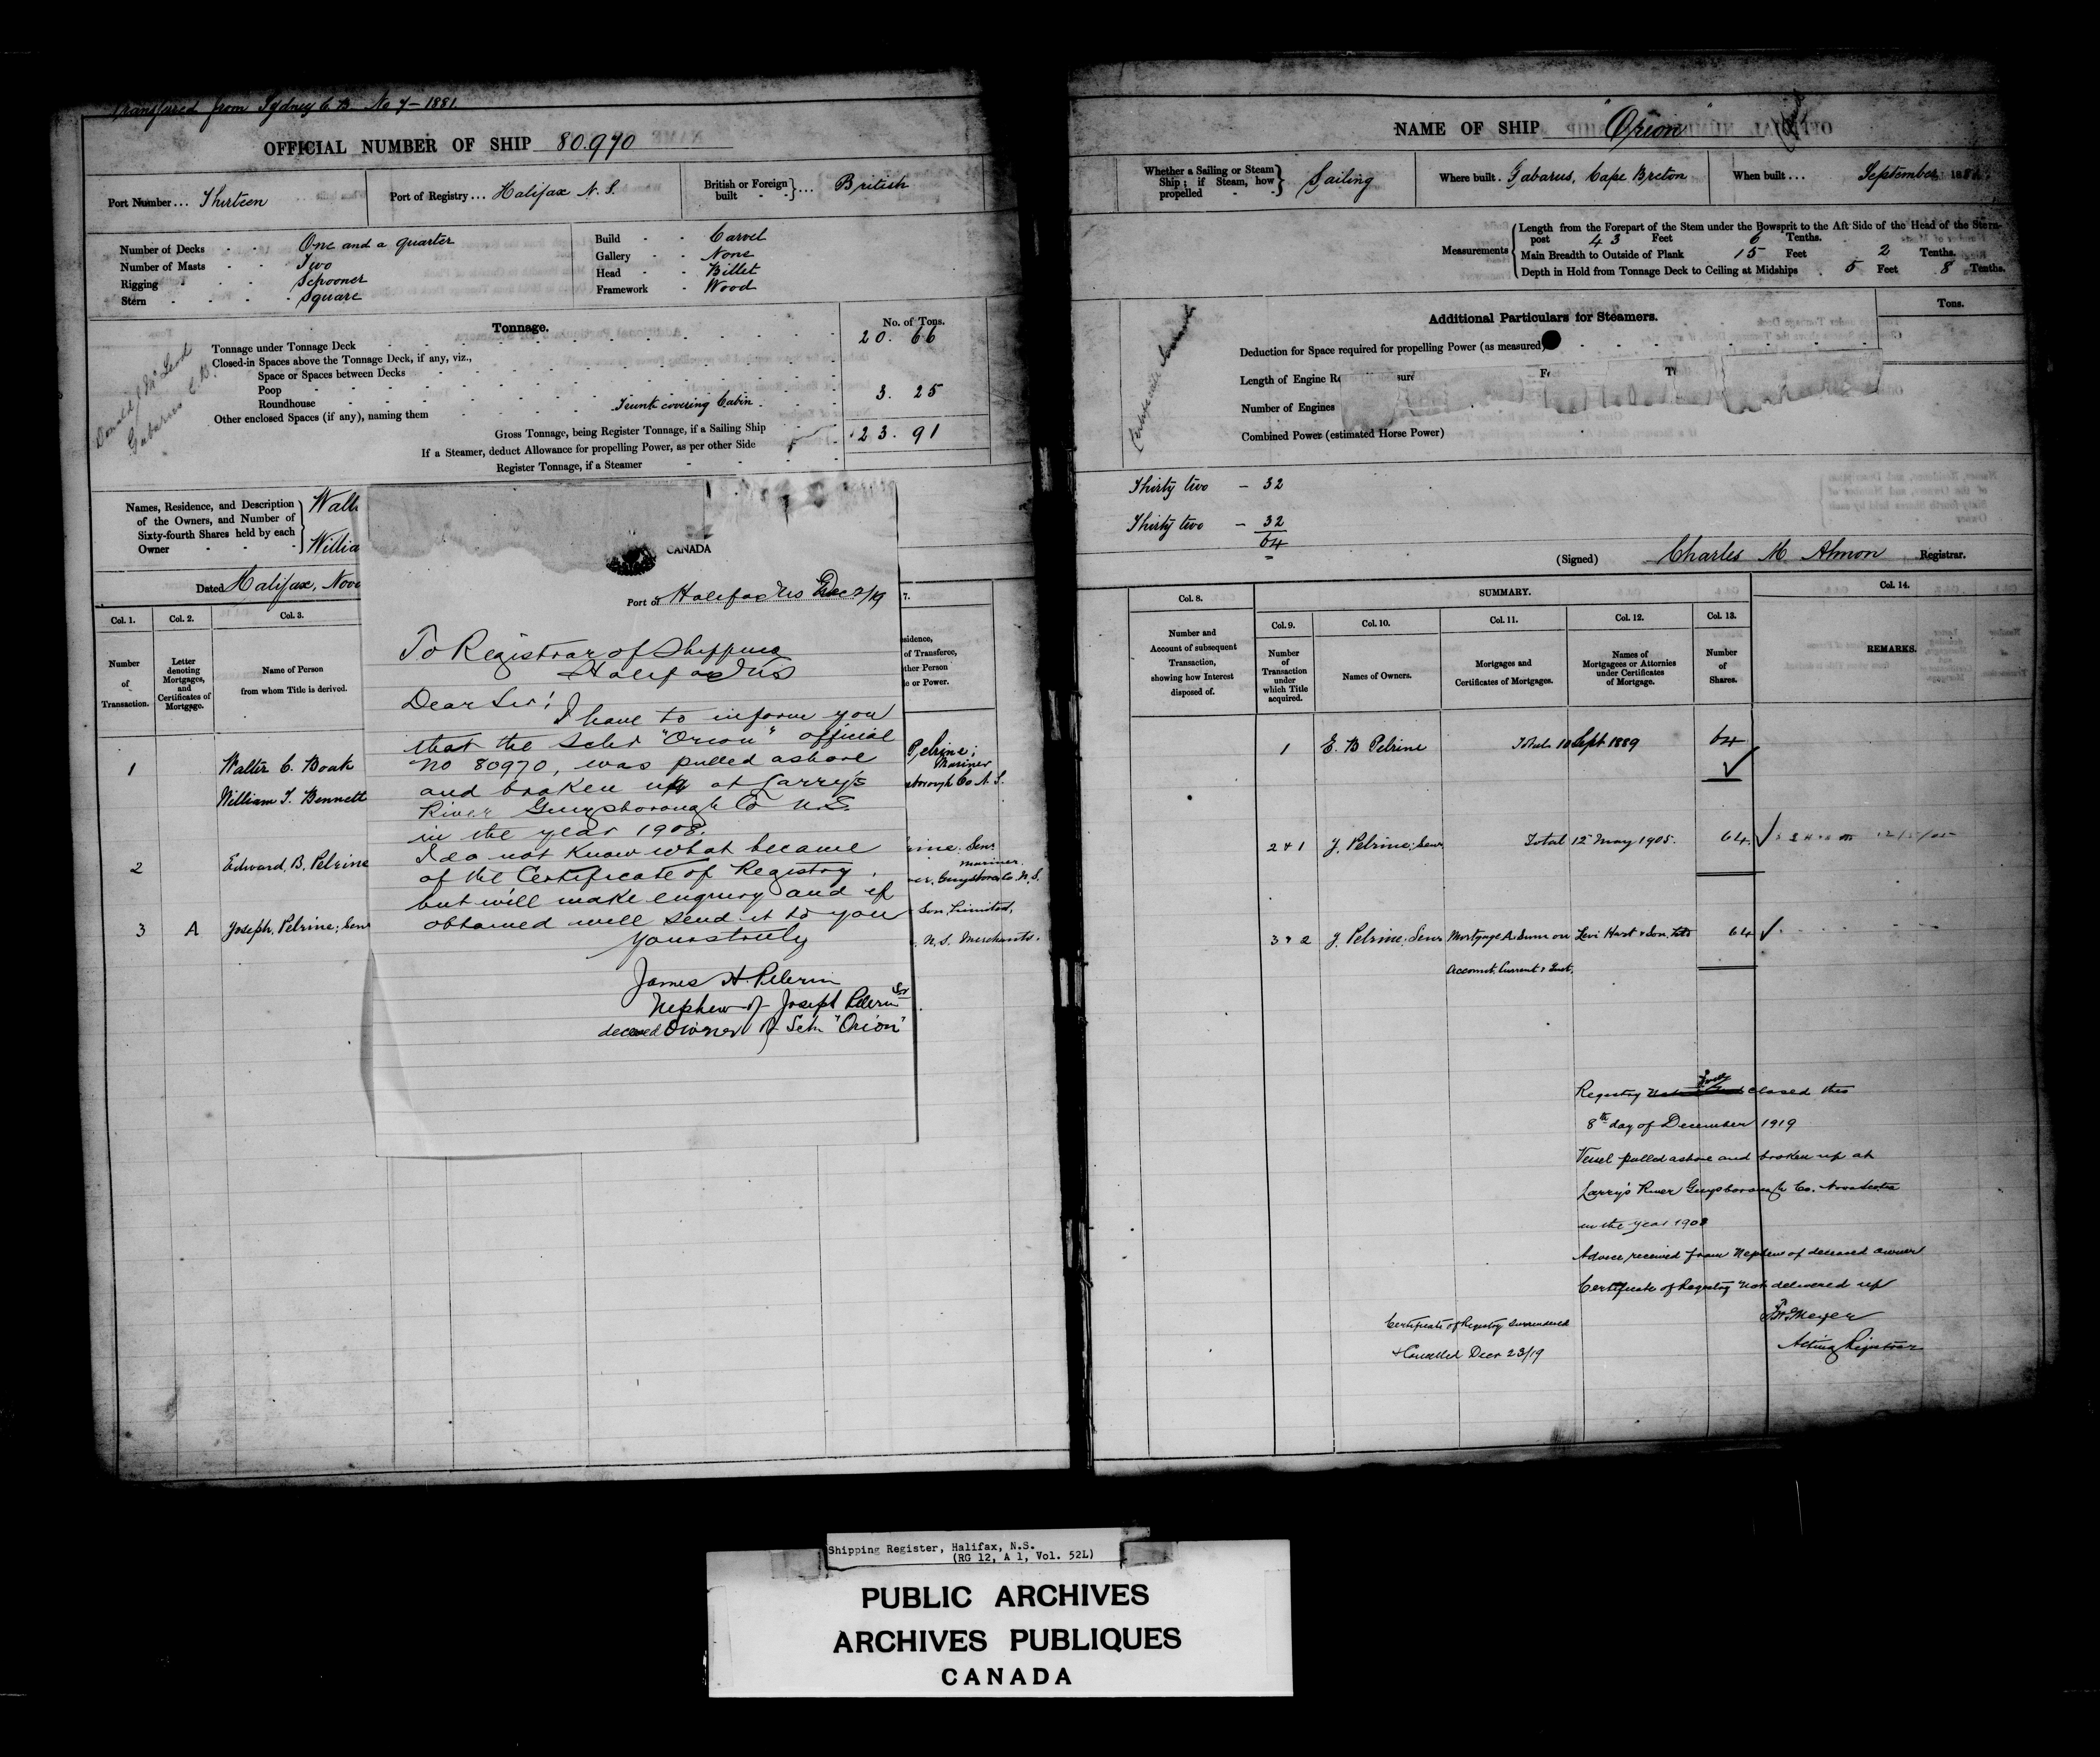 Transfered from Sydney C.B. No 7 - 1881.
OFFICIAL NUMBER OF SHIP 80.970
Port Number ... Thirteen
Port of Registry ... Halifax N.S.
British or Foreign built } ... British
Number of Decks - - One and a quarter
Number of Masts - - Two
Rigging - - - Schooner
Stern - - - - Square
Build - - Carvel
Gallery - - None
Head - - Billet
Framework - Wood
Donald McLeod
Gabarus C.B.
Tonnage.
No. of Tons.
Tonnage under Tonnage Deck 20. 66
Closed-in Spaces above the Tonnage Deck, if any, viz.,
Space or Spaces between Decks
Poop
Roundhouse
Other enclosed Spaces (if any), naming them Trunk covering Cabin 3. 25
Gross Tonnage, being Register Tonnage, if a Sailing Ship 23. 91
If a Steamer, deduct Allowance for propelling Power, as per other Side
Register Tonnage, if a Steamer
Names, Residence, and Description
of the Owners, and Number of
Sixty-fourth Shares held by each
Owner
Walt
Willia
Dated Halifax, Nove
Col. 1. Col. 2. Col. 3.
Number of Transaction.
Letter denoting Mortgages, and Certificates of Mortgage.
Name of Person from whom Title is derived.
1 Walter C. Boak
William T. Bennett
2 Edward B. Pelrine
3 A Joseph Pelrine; Sen
CANADA
Port of Halifax NS Dec 2/19
To Registrar of Shipping
Halifax NS
Dear Sir!
I have to inform you
that the Schr "Orion" official
no 80970, was pulled ashore
and broken up at Larry's
River Guysborough Co N.S.
in the year 1908.
I do not know what became
of the Certificate of Registry,
but will make enquiry and if
obtained will send it to you
Yours truly
James H. Pelerin
Nephew of Joseph Pelerin Sr
deceased Owner of Sch. "Orion"
7.
sidence,
of Transferee,
ther Person
e or Power.
Pelrine;
Mariner
sborough Co N.S.
rine. Senr
mariner.
er, Guysboro Co. N.S.
Son, Limited,
. N.S. Merchants.
NAME OF SHIP "Orion"
Whether a Sailing or Steam Ship; if Steam, how propelled } Sailing
Where built . Gabarus, Cape Breton
When built ... September 188
Measurements
Length from the Forepart of the Stem under the Bowsprit to the Aft Side of the Head of the Stern-
post 43 Feet 6 Tenths.
Main Breadth to Outside of Plank 15 Feet 2 Tenths.
Depth in Hold from Tonnage Deck to Ceiling at Midships 5 Feet 8 Tenths.
Tons.
Additional Particulars for Steamers.
Deduction for Space required for propelling Power (as measured)
Length of Engine R
Number of Engines
Combined Power (estimated Horse Power)
Thirty two - 32
Thirty two - 32
64
(Signed) Charles M. Almon Registrar.
Col. 8.
Number and Account of subsequent Transaction, showing how Interest disposed of.
SUMMARY.
Col. 9. Col. 10. Col. 11. Col. 12. Col. 13. Col. 14.
Number of Transaction under which Title acquired.
Names of Owners.
Mortgages and Certificates of Mortgages.
Names of Mortgagees or Attornies under Certificates of Mortgage.
Number of Shares.
REMARKS.
1 E. B Pelrine Total 10 Sept 1889 64
2 & 1 J. Pelrine; Senr Total 12 May 1905. 64
3 & 2 J. Pelrine; Senr Mortgage A. Sum on Levi Hart & Son. Ltd 64
Account Current & Inst.
Registry closed this
8th day of December 1919
Vessel pulled ashore and broken up at
Larry's River Guysborough Co. Nova Scotia
in the year 1908
Advice received from Nephew of deceased owner
Certificate of Registry not delivered up
Acting Registrar
Certificate of Registry surrendered
& Cancelled Decr 23/19
Shipping Register, Halifax, N.S.
(RG 12, A 1, Vol. 52L)
PUBLIC ARCHIVES
ARCHIVES PUBLIQUES
CANADA